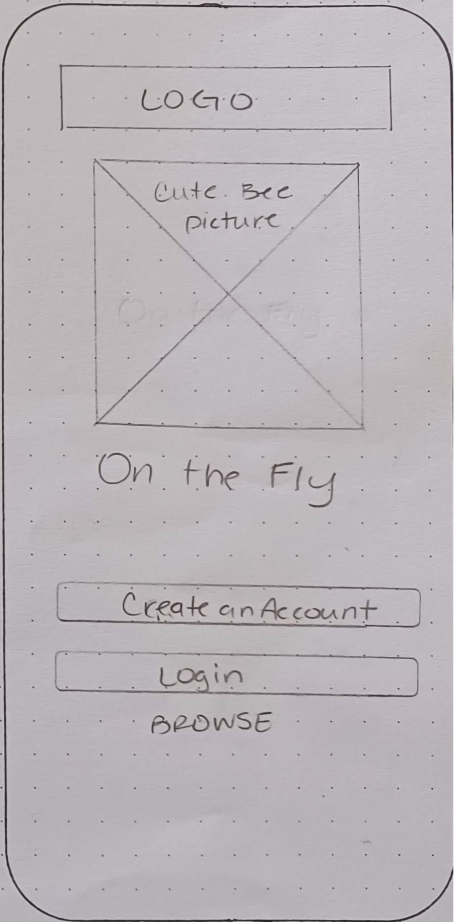 LOGO
Cute Bee
picture
On the Fly
On the Fly
Create an Account
Login
BROWSE